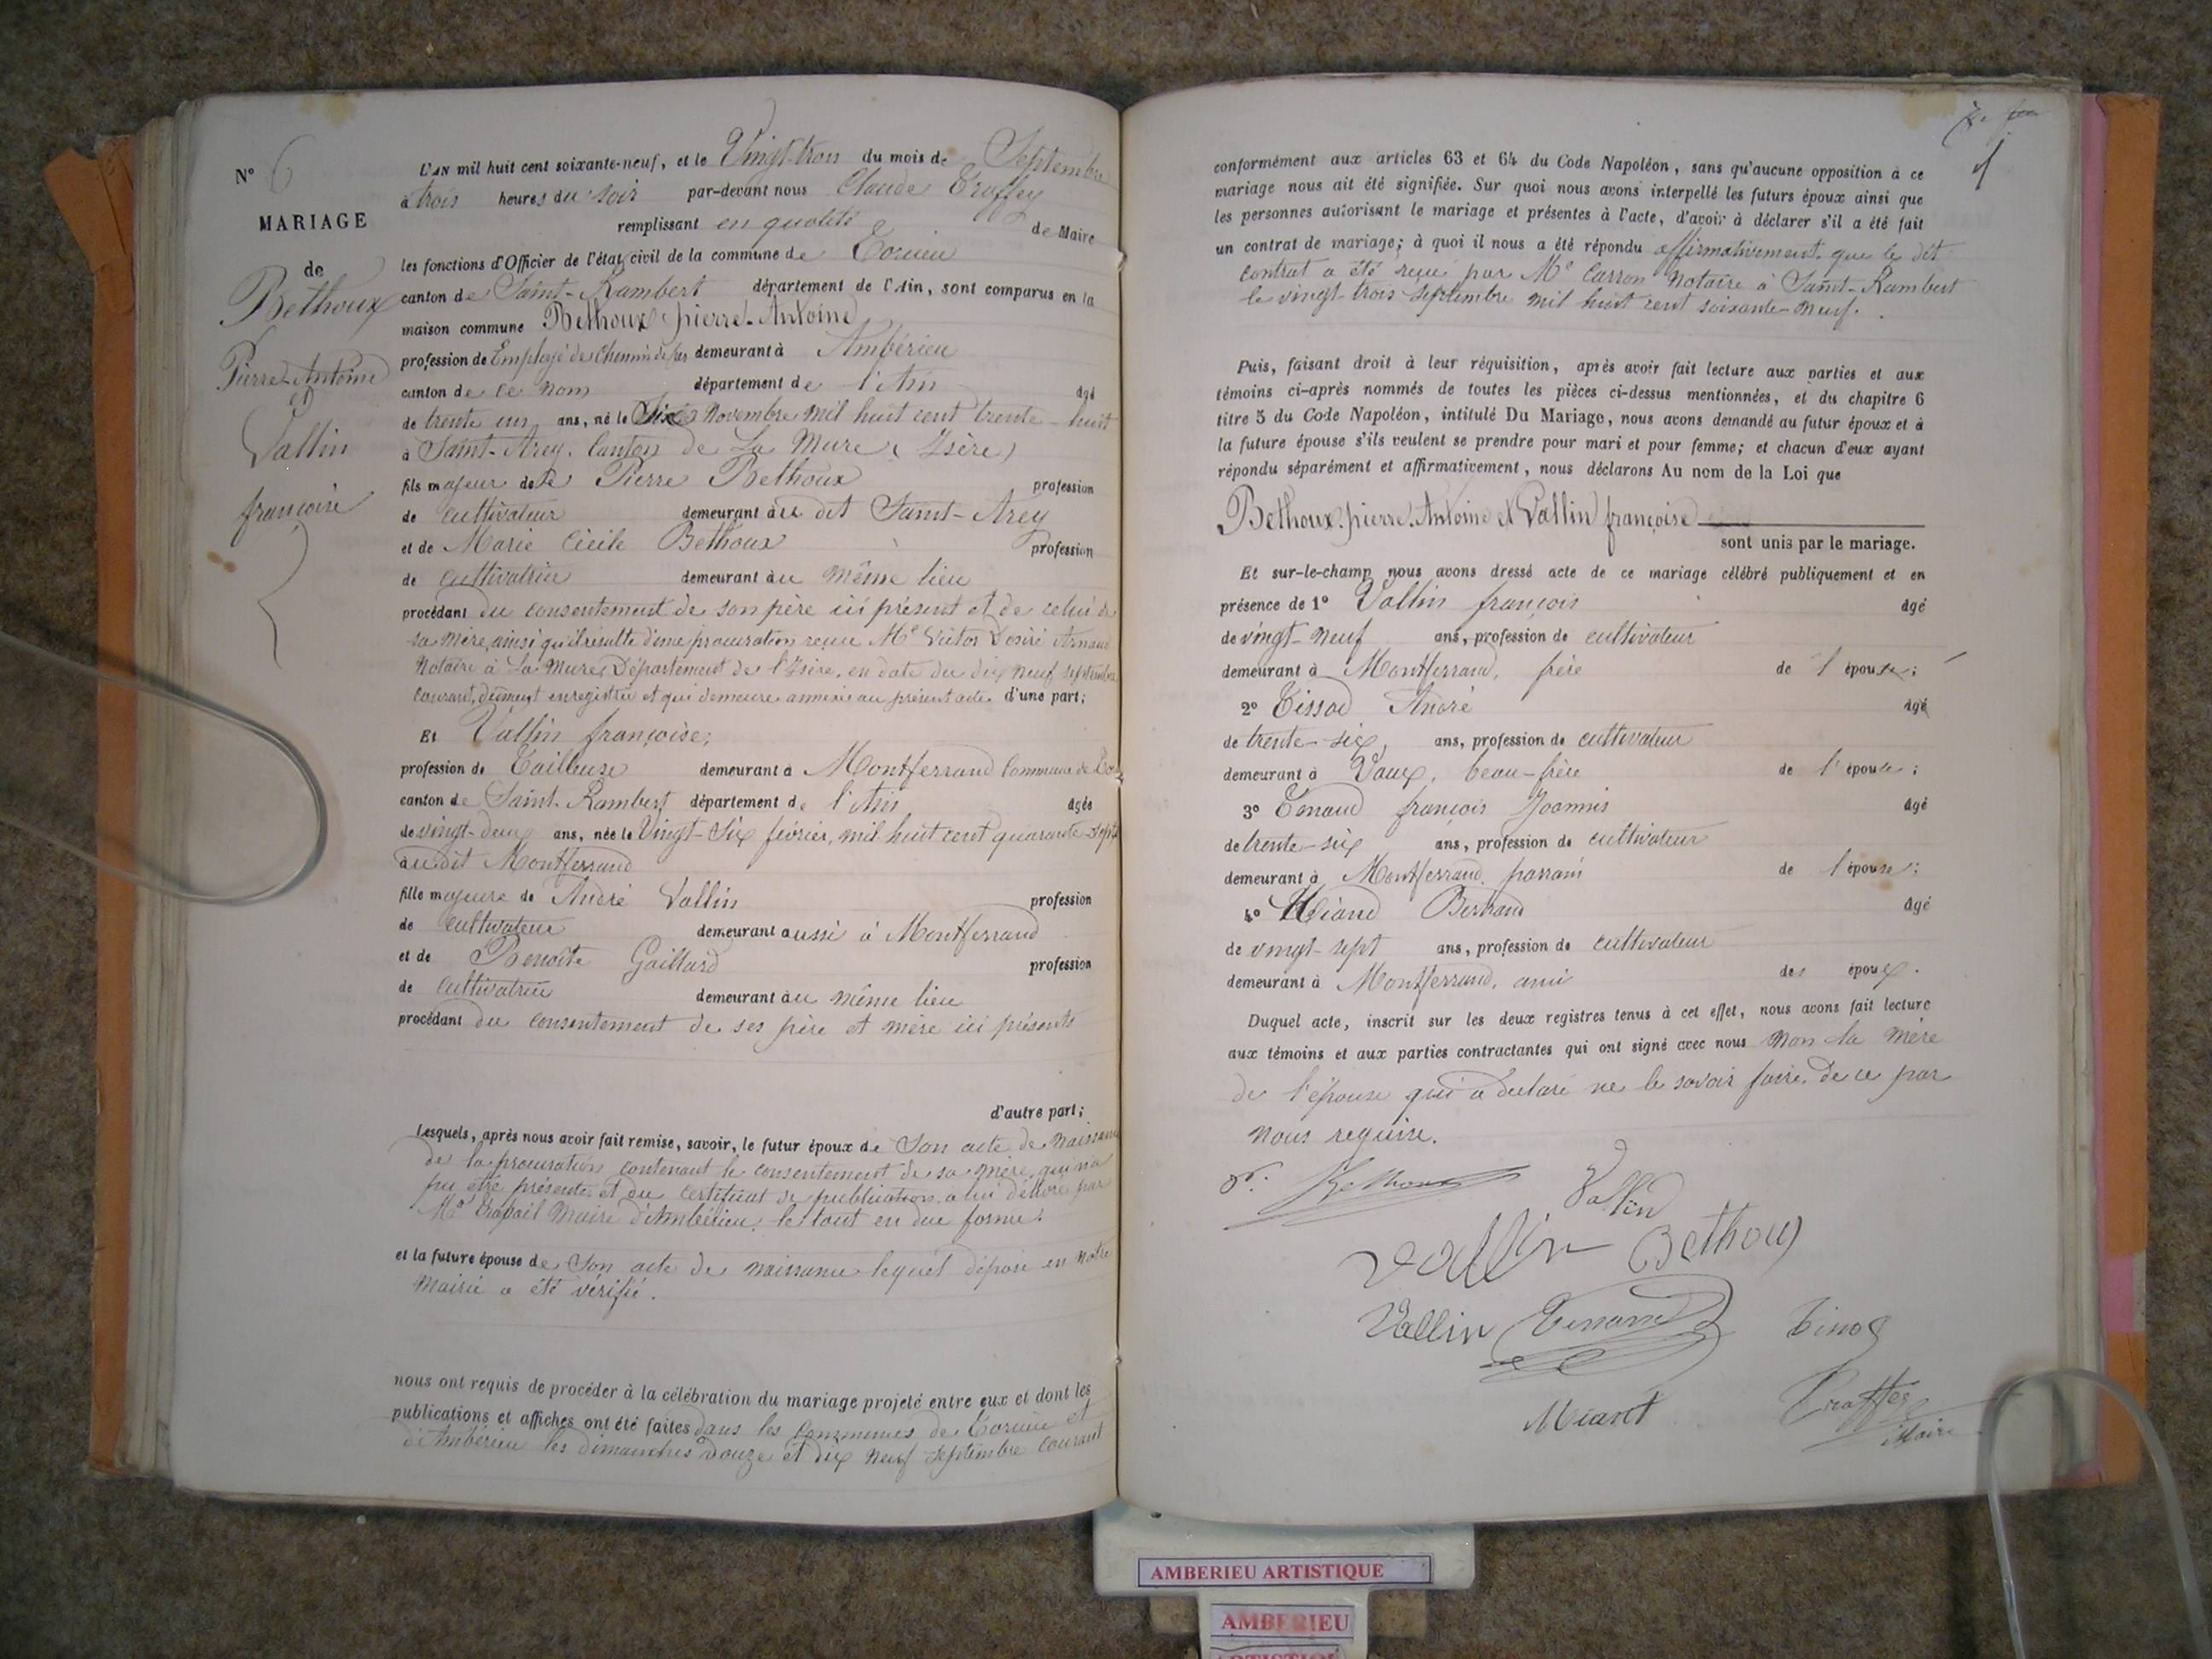 N° 6
MARIAGE
de
Bethoux
Pierre-Antoine
et
Vallin
françoise
L'AN mil huit cent soixante-neuf, et le Vingt-trois du mois de Septembre
à trois heures du soir par-devant nous Claude Truffey
remplissant en qualité de Maire
les fonctions d'Officier de l'état civil de la commune de Torcieu
canton de Saint-Rambert département de l'Ain, sont comparus en la
maison commune Bethoux pierre-Antoine
profession de Employé de chemin de fer demeurant à Ambérieu
canton de ce nom département de l'Ain âgé
de trente un ans, né le Six Novembre mil huit cent trente-huit
à Saint-Arey, Canton de La Mure (Isère)
fils majeur de Pierre Bethoux profession
de cultivateur demeurant au dit Saint-Arey
et de Marie Cécile Bethoux profession
de cultivatrice demeurant au même lieu
procédant du consentement de son père ici présent et de celui de
sa mère, ainsi qu'il résulte d'une procuration reçue Me Victor Désiré Arnaud
Notaire à La Mure, Département de l'Isère, en date du dix neuf septembre
courant, dûment enregistrée et qui demeure annexée au présent acte d'une part;
Et Vallin françoise;
profession de Tailleuse demeurant à Montferrand Commune de
canton de Saint-Rambert département de l'Ain âgée
de vingt-deux ans, née le Vingt-Six février, mil huit cent quarante-sept
au dit Montferrand
fille majeure de André Vallin profession
de cultivateur demeurant aussi à Montferrand
et de Benoîte Gaillard profession
de cultivatrice demeurant au même lieu
procédant du consentement de ses père et mère ici présents
d'autre part;
Lesquels, après nous avoir fait remise, savoir, le futur époux de Son acte de Naissance
de la procuration contenant le consentement de sa mère qui n'a
pu être présente et du certificat de publication à lui délivré par
Mr maire d'Ambérieu, le tout en due forme.
et la future épouse de Son acte de naissance lequel déposé en notre
Mairie a été vérifié.
nous ont requis de procéder à la célébration du mariage projeté entre eux et dont les
publications et affiches ont été faites dans les Communes de Torcieu et
d'Ambérieu les dimanches douze et dix neuf septembre courant
conformément aux articles 63 et 64 du Code Napoléon, sans qu'aucune opposition à ce
mariage nous ait été signifiée. Sur quoi nous avons interpellé les futurs époux ainsi que
les personnes autorisant le mariage et présentes à l'acte, d'avoir à déclarer s'il a été fait
un contrat de mariage; à quoi il nous a été répondu affirmativement que le dit
contrat a été reçu par Me Carron Notaire à Saint-Rambert
le vingt-trois septembre mil huit cent soixante-neuf.
Puis, faisant droit à leur réquisition, après avoir fait lecture aux parties et aux
témoins ci-après nommés de toutes les pièces ci-dessus mentionnées, et du chapitre 6
titre 5 du Code Napoléon, intitulé Du Mariage, nous avons demandé au futur époux et à
la future épouse s'ils veulent se prendre pour mari et pour femme; et chacun d'eux ayant
répondu séparément et affirmativement, nous déclarons Au nom de la Loi que
Bethoux pierre-Antoine et Vallin françoise
sont unis par le mariage.
Et sur-le-champ nous avons dressé acte de ce mariage célébré publiquement et en
présence de 1° Vallin françois âgé
de vingt-neuf ans, profession de cultivateur
demeurant à Montferrand, frère de l'épouse;
2° Tissot André âgé
de trente-six, ans, profession de cultivateur
demeurant à Vaux, beau-frère de l'épouse;
3° Tenand françois Joannis âgé
de trente-six ans, profession de cultivateur
demeurant à Montferrand, parrain de l'épouse;
4° Miand Bertrand âgé
de vingt-sept ans, profession de cultivateur
demeurant à Montferrand, ami des époux.
Duquel acte, inscrit sur les deux registres tenus à cet effet, nous avons fait lecture
aux témoins et aux parties contractantes qui ont signé avec nous non la mère
de l'épouse qui a déclaré ne le savoir faire, de ce par
nous requise.
Bethoux Vallin
Vallin Bethoux
Vallin Tenand
Miant
Maire
AMBERIEU ARTISTIQUE
AMBERIEU
ARTISTIQUE